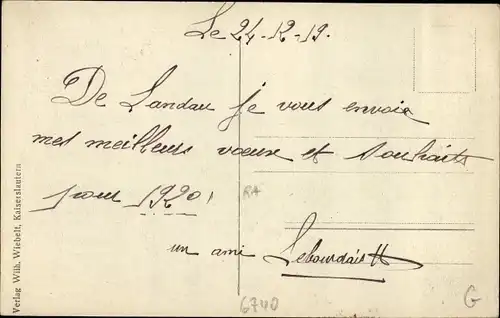 Le 24-12-19.
De Landau je vous envoie
mes meilleurs voeux et souhaits
pour 1920!
un ami Lebourdais H
RA
6740
G
Verlag Wilh. Wiebelt, Kaiserslautern